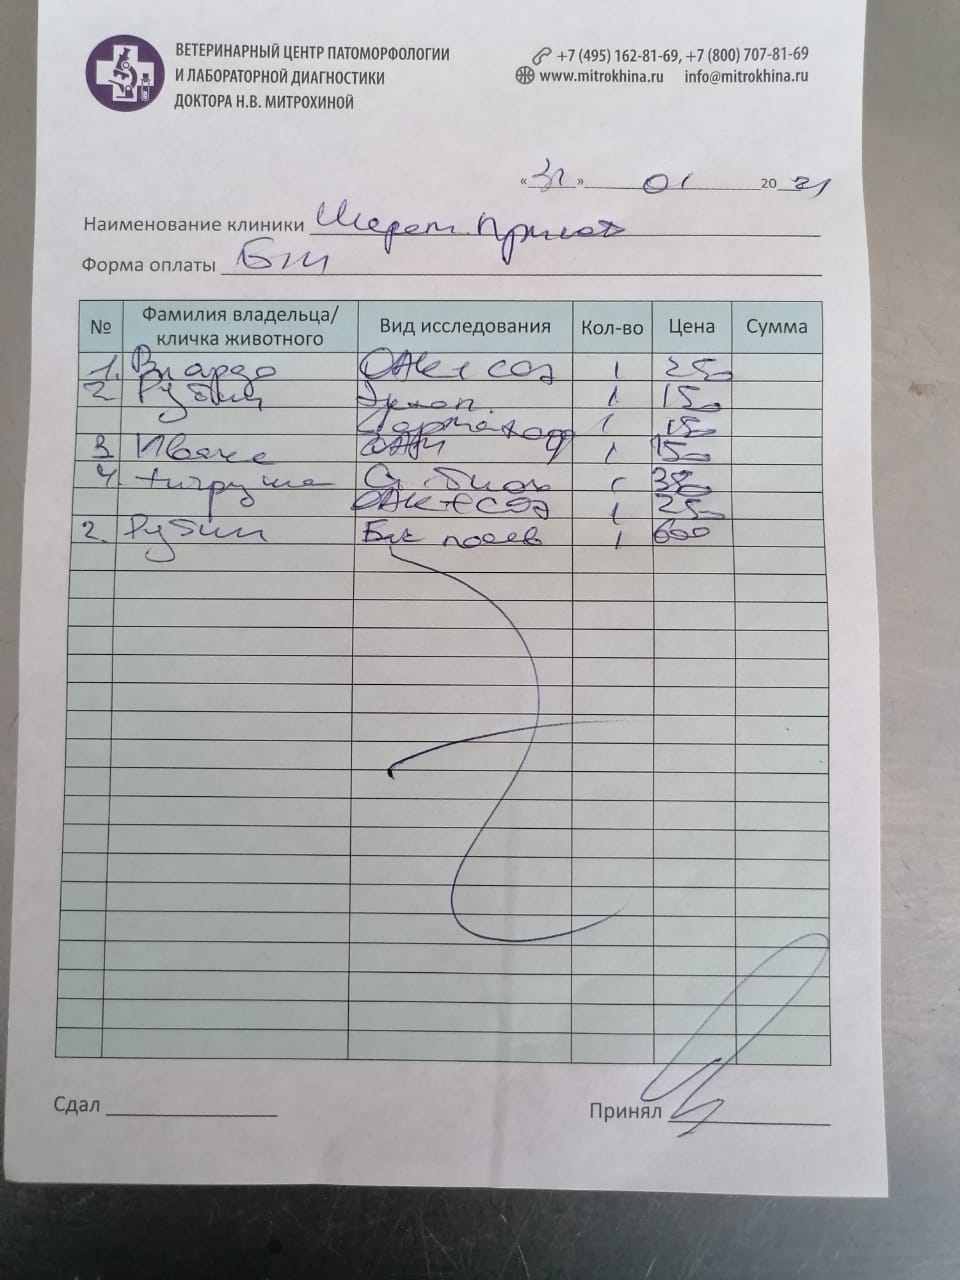 ВЕТЕРИНАРНЫЙ ЦЕНТР ПАТОМОРФОЛОГИИ
И ЛАБОРАТОРНОЙ ДИАГНОСТИКИ
ДОКТОРА Н.В. МИТРОХИНОЙ
+7 (495) 162-81-69, +7 (800) 707-81-69
www.mitrokhina.ru info@mitrokhina.ru
«31» 01 2021
Наименование клиники Шерем. Приют
Форма оплаты Б/н
№ Фамилия владельца/ кличка животного Вид исследования Кол-во Цена Сумма
1. ОАК + СОЭ 1 250
2. Рубин 1 150
1 150
3. ОАМ 1 150
4. 1 380
ОАК + СОЭ 1 250
2. Рубин Бак посев 1 600
Сдал
Принял